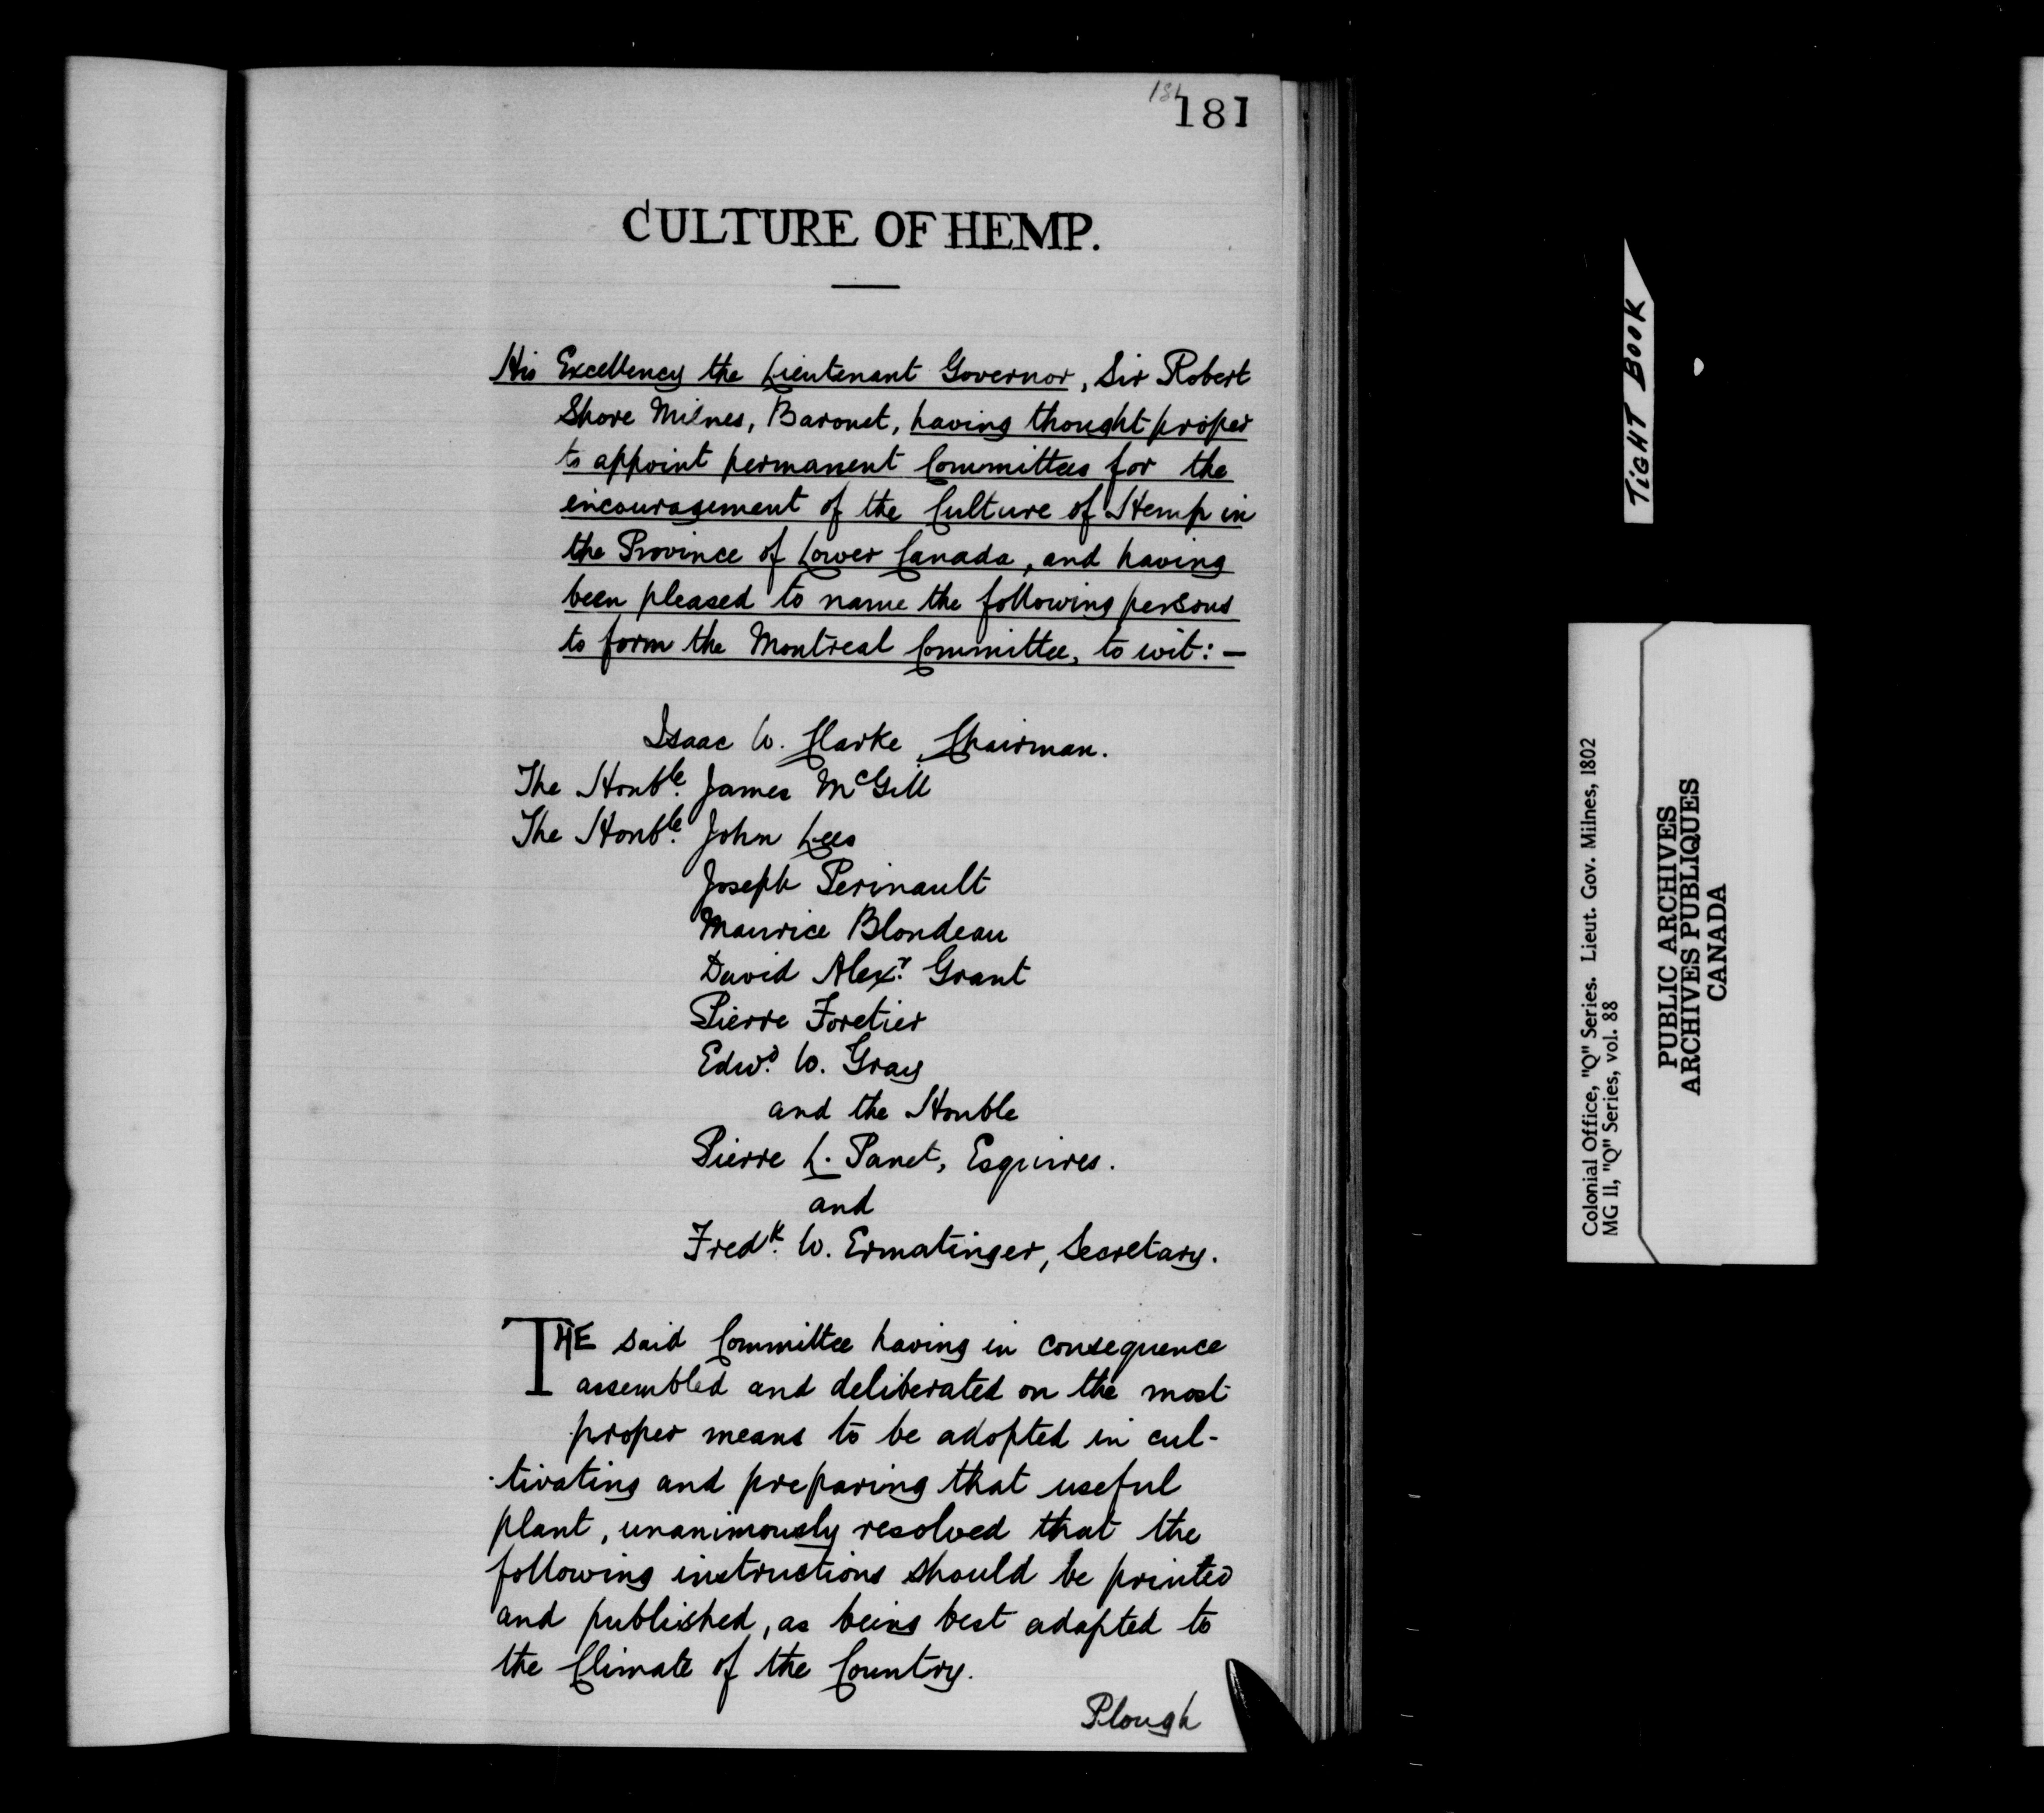 181
181
CULTURE OF HEMP.
His Excellency the Lieutenant Governor, Sir Robert
Shore Milnes, Baronet, having thought proper
to appoint permanent Committees for the
encouragement of the Culture of Hemp in
the Province of Lower Canada, and having
been pleased to name the following persons
to form the Montreal Committee, to wit: —
Isaac W. Clarke, Chairman.
The Honble. James McGill
The Honble. John Lees
Joseph Perinault
Maurice Blondeau
David Alexr. Grant
Pierre Foretier
Edwd. W. Gray
and the Honble
Pierre L. Panet, Esquires.
and
Fredk. W. Ermatinger, Secretary.
THE said Committee having in consequence
assembled and deliberated on the most
proper means to be adopted in cul-
-tivating and preparing that useful
plant, unanimously resolved that the
following instructions should be printed
and published, as being best adapted to
the Climate of the Country.
Plough
TIGHT BOOK
Colonial Office, "Q" Series. Lieut. Gov. Milnes, 1802
MG 11, "Q" Series, vol. 88
PUBLIC ARCHIVES
ARCHIVES PUBLIQUES
CANADA